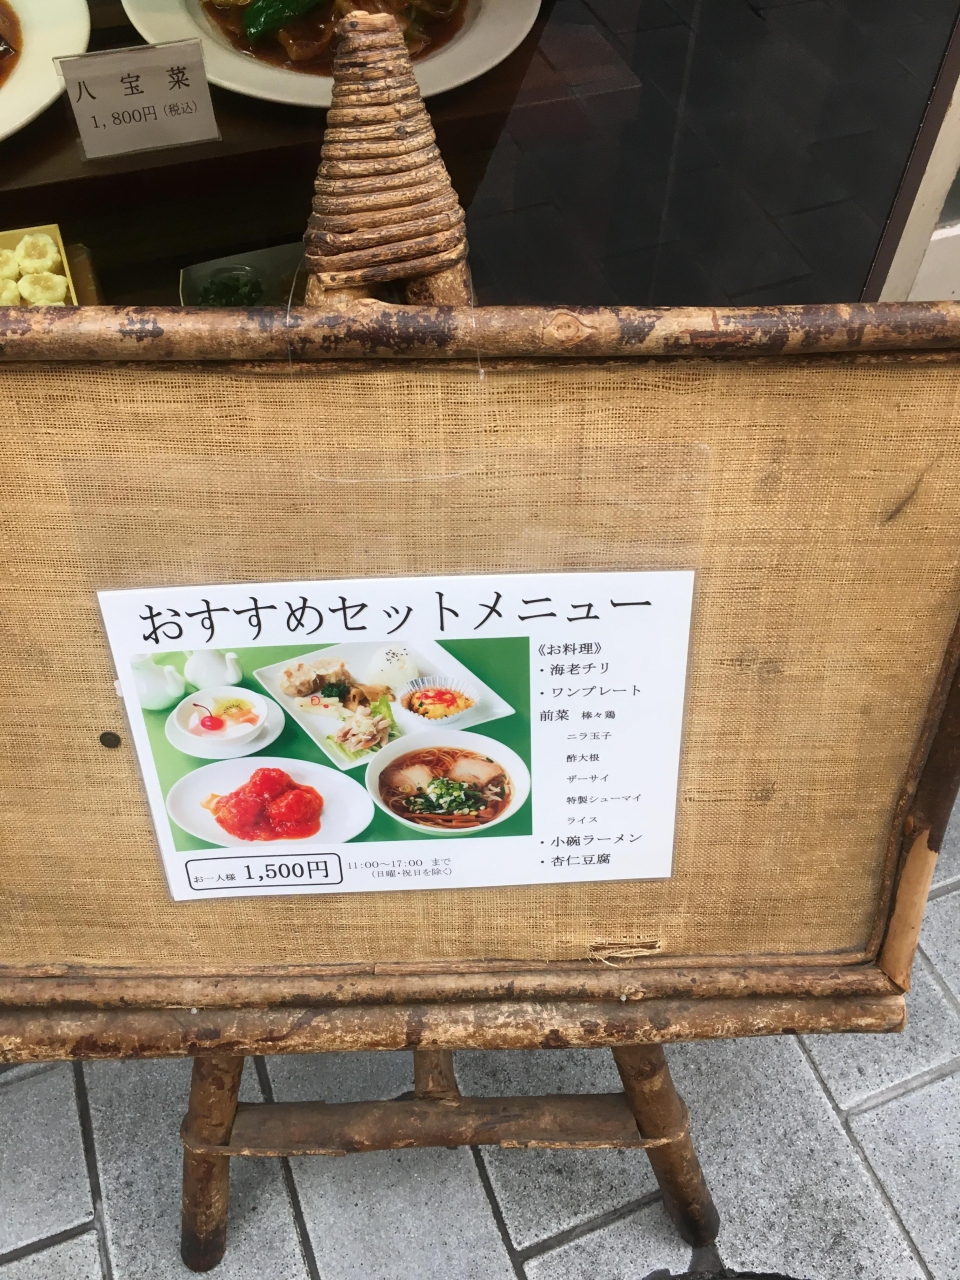 八宝菜
1,800円（税込）
おすすめセットメニュー
《お料理》
・海老チリ
・ワンプレート
前菜 棒々鶏
ニラ玉子
酢大根
ザーサイ
特製シューマイ
ライス
・小碗ラーメン
・杏仁豆腐
お一人様 1,500円
11:00〜17:00 まで
（日曜・祝日を除く）